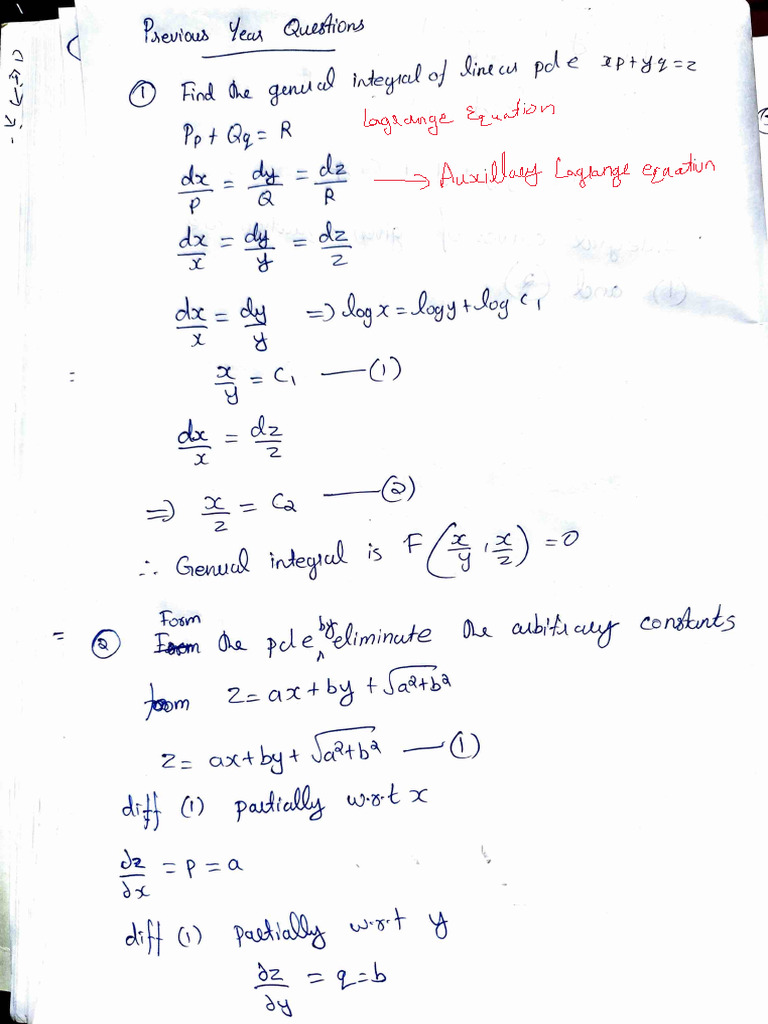 Previous Year Questions
① Find the genual integral of linear pde xp+yq=z
Pp + Qq = R Lagrange Equation
dx/P = dy/Q = dz/R → Auxillary Lagrange equation
dx/x = dy/y = dz/z
dx/x = dy/y ⇒ log x = log y + log C₁
x/y = C₁ —(1)
dx/x = dz/z
⇒ x/z = C₂ —(2)
∴ Genual integral is F(x/y, x/z) = 0
② Form the pde by eliminate the arbitrary constants
from z = ax + by + √a²+b²
z = ax+by+ √a²+b² —(1)
diff (1) partially w.r.t x
∂z/∂x = p = a
diff (1) partially w.r.t y
∂z/∂y = q = b